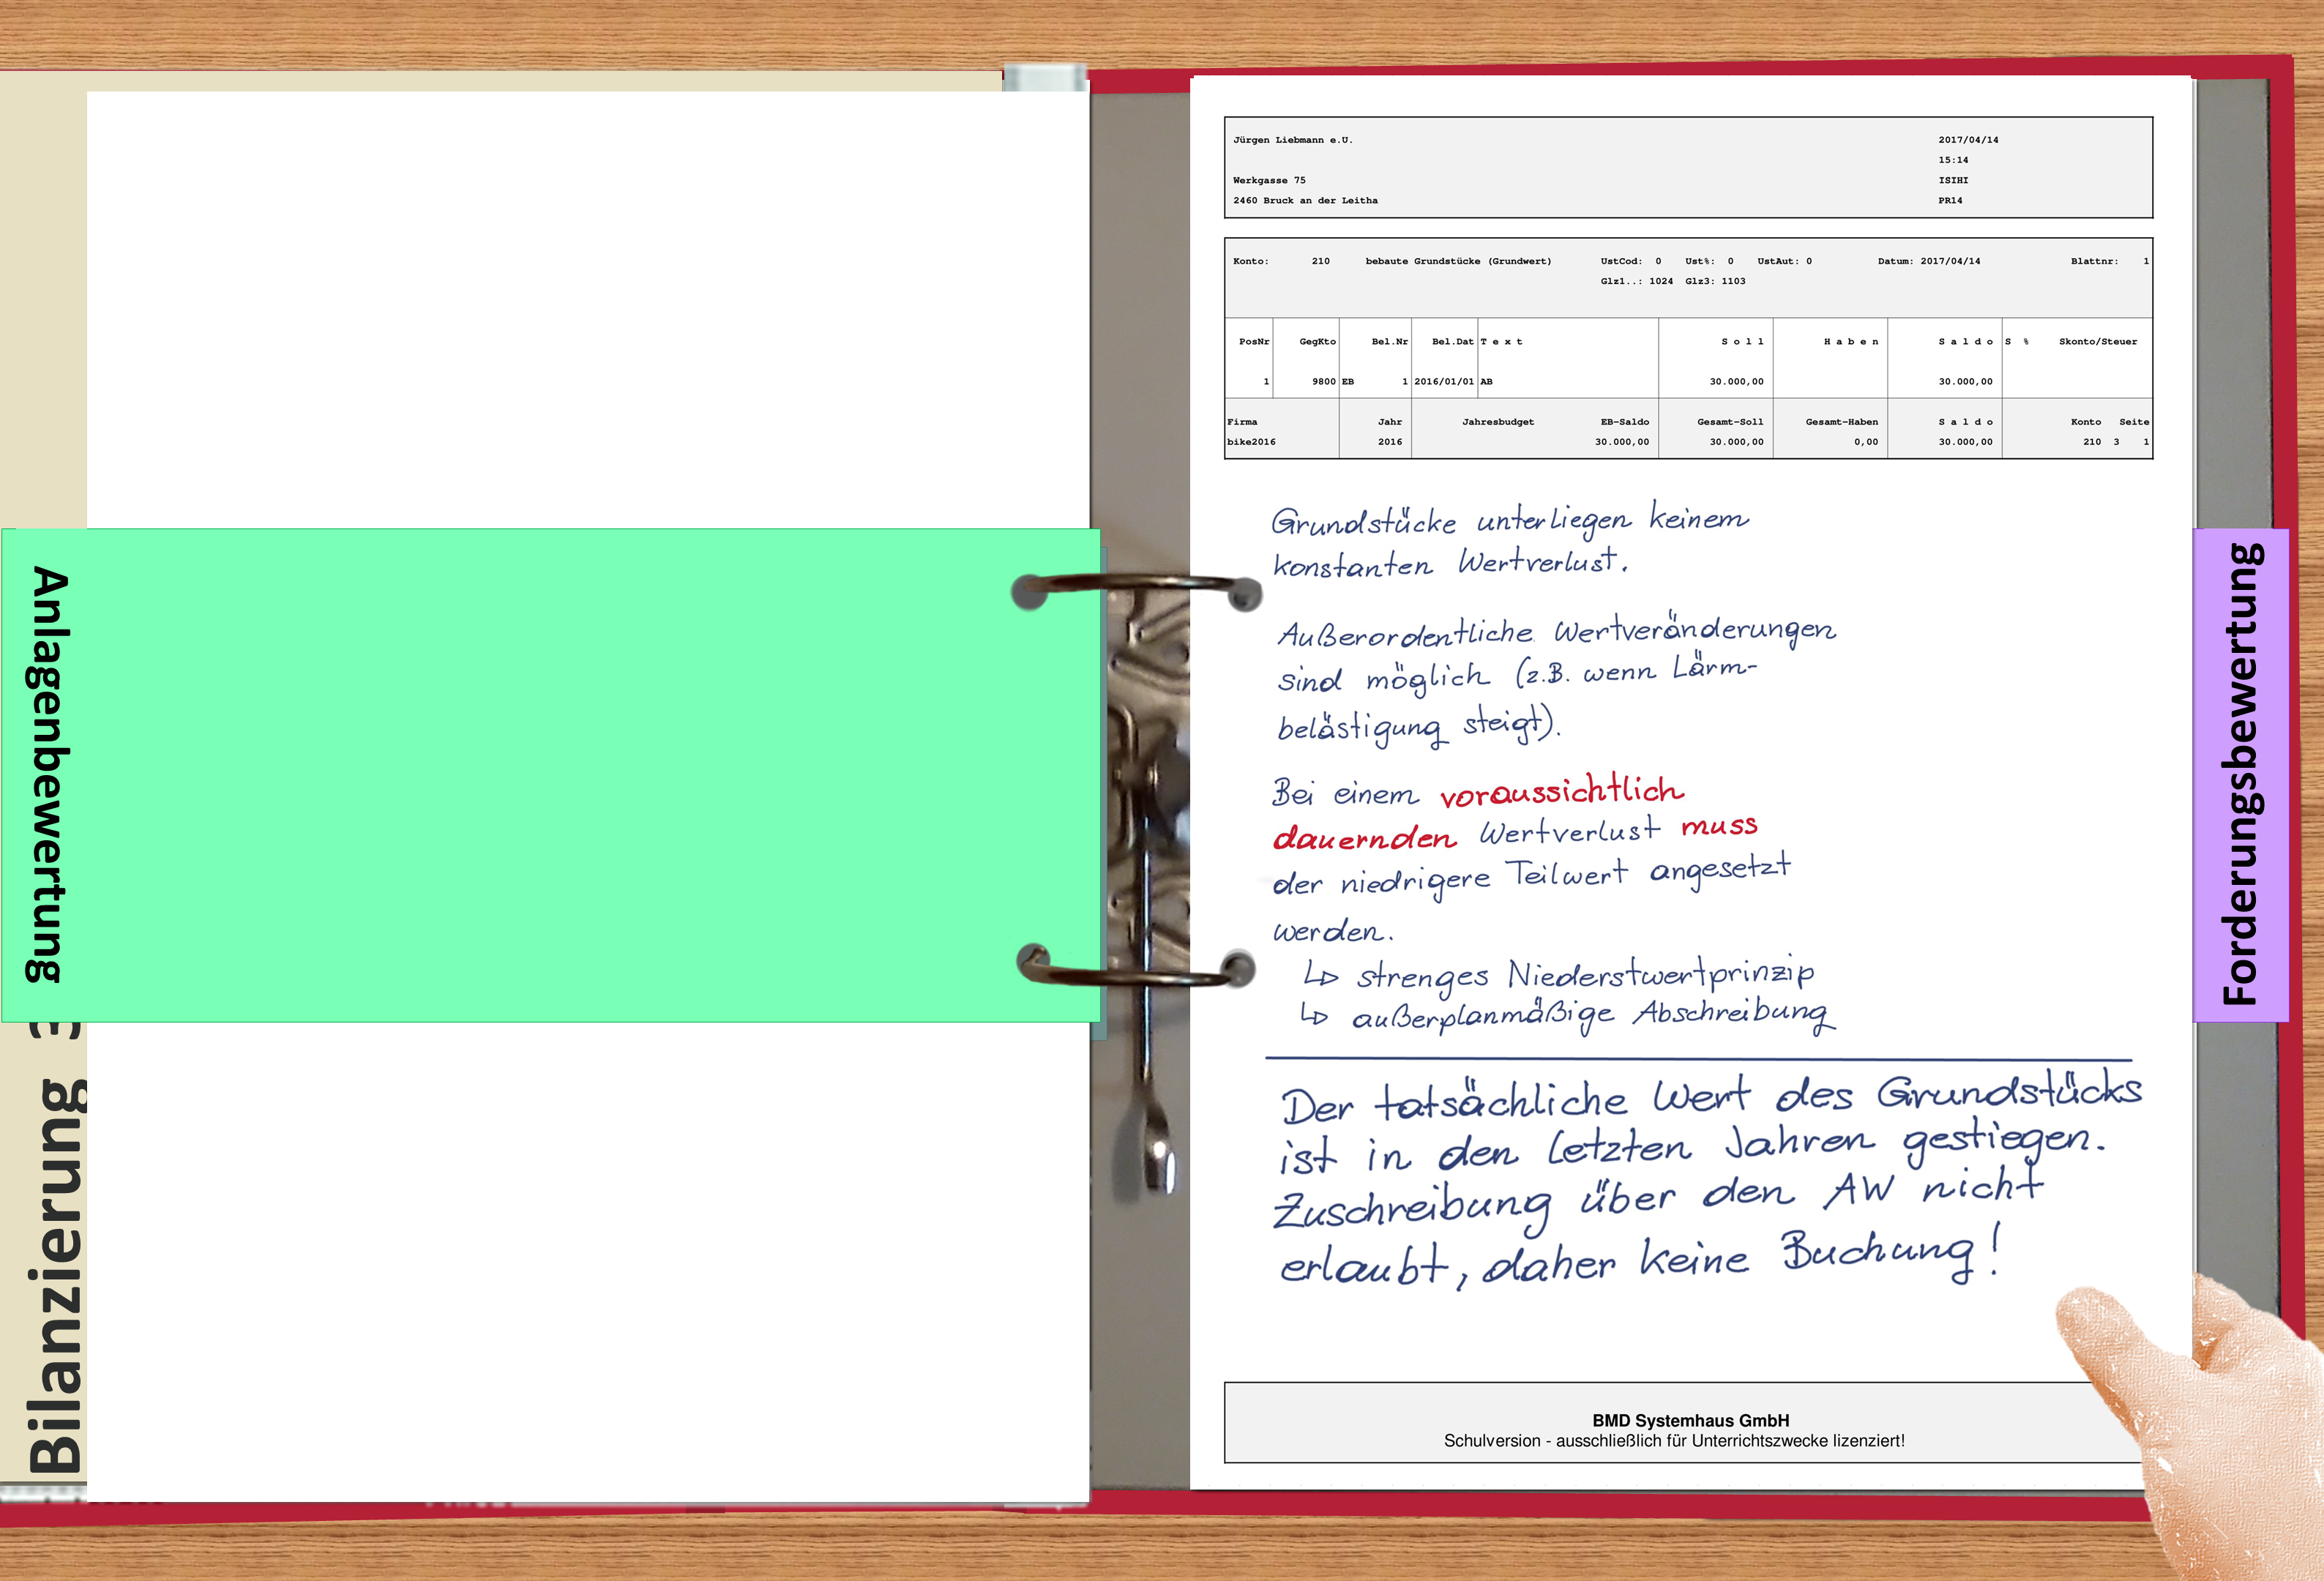 Anlagenbewertung
Bilanzierung
Jürgen Liebmann e.U. 2017/04/14
15:14
Werkgasse 75 ISIHI
2460 Bruck an der Leitha PR14
Konto: 210 bebaute Grundstücke (Grundwert) UstCod: 0 Ust%: 0 UstAut: 0 Datum: 2017/04/14 Blattnr: 1
Glz1..: 1024 Glz3: 1103
PosNr GegKto Bel.Nr Bel.Dat T e x t S o l l H a b e n S a l d o S % Skonto/Steuer
1 9800 EB 1 2016/01/01 AB 30.000,00 30.000,00
Firma Jahr Jahresbudget EB-Saldo Gesamt-Soll Gesamt-Haben S a l d o Konto Seite
bike2016 2016 30.000,00 30.000,00 0,00 30.000,00 210 3 1
Grundstücke unterliegen keinem
konstanten Wertverlust.
Außerordentliche Wertveränderungen
sind möglich (z.B. wenn Lärm-
belästigung steigt).
Bei einem voraussichtlich
dauernden Wertverlust muss
der niedrigere Teilwert angesetzt
werden.
↳ strenges Niederstwertprinzip
↳ außerplanmäßige Abschreibung
Der tatsächliche Wert des Grundstücks
ist in den letzten Jahren gestiegen.
Zuschreibung über den AW nicht
erlaubt, daher keine Buchung!
BMD Systemhaus GmbH
Schulversion - ausschließlich für Unterrichtszwecke lizenziert!
Forderungsbewertung